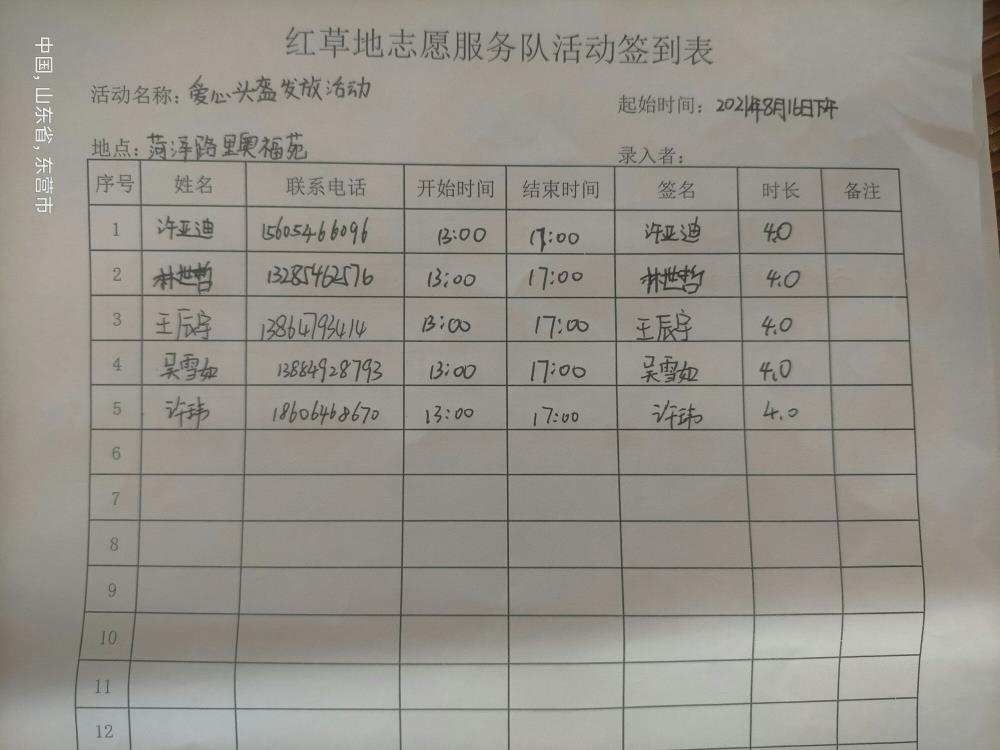 中国, 山东省, 东营市
红草地志愿服务队活动签到表
活动名称：爱心头盔发放活动
起始时间：2021年8月16日下午
地点：菏泽路里奥福苑
录入者：
序号 姓名 联系电话 开始时间 结束时间 签名 时长 备注
1 许亚迪 15605466096 13:00 17:00 许亚迪 4.0
2 林世哲 13285462576 13:00 17:00 林世哲 4.0
3 王辰宇 13864793414 13:00 17:00 王辰宇 4.0
4 吴雪如 13884928793 13:00 17:00 吴雪如 4.0
5 许玮 18606468670 13:00 17:00 许玮 4.0
6
7
8
9
10
11
12